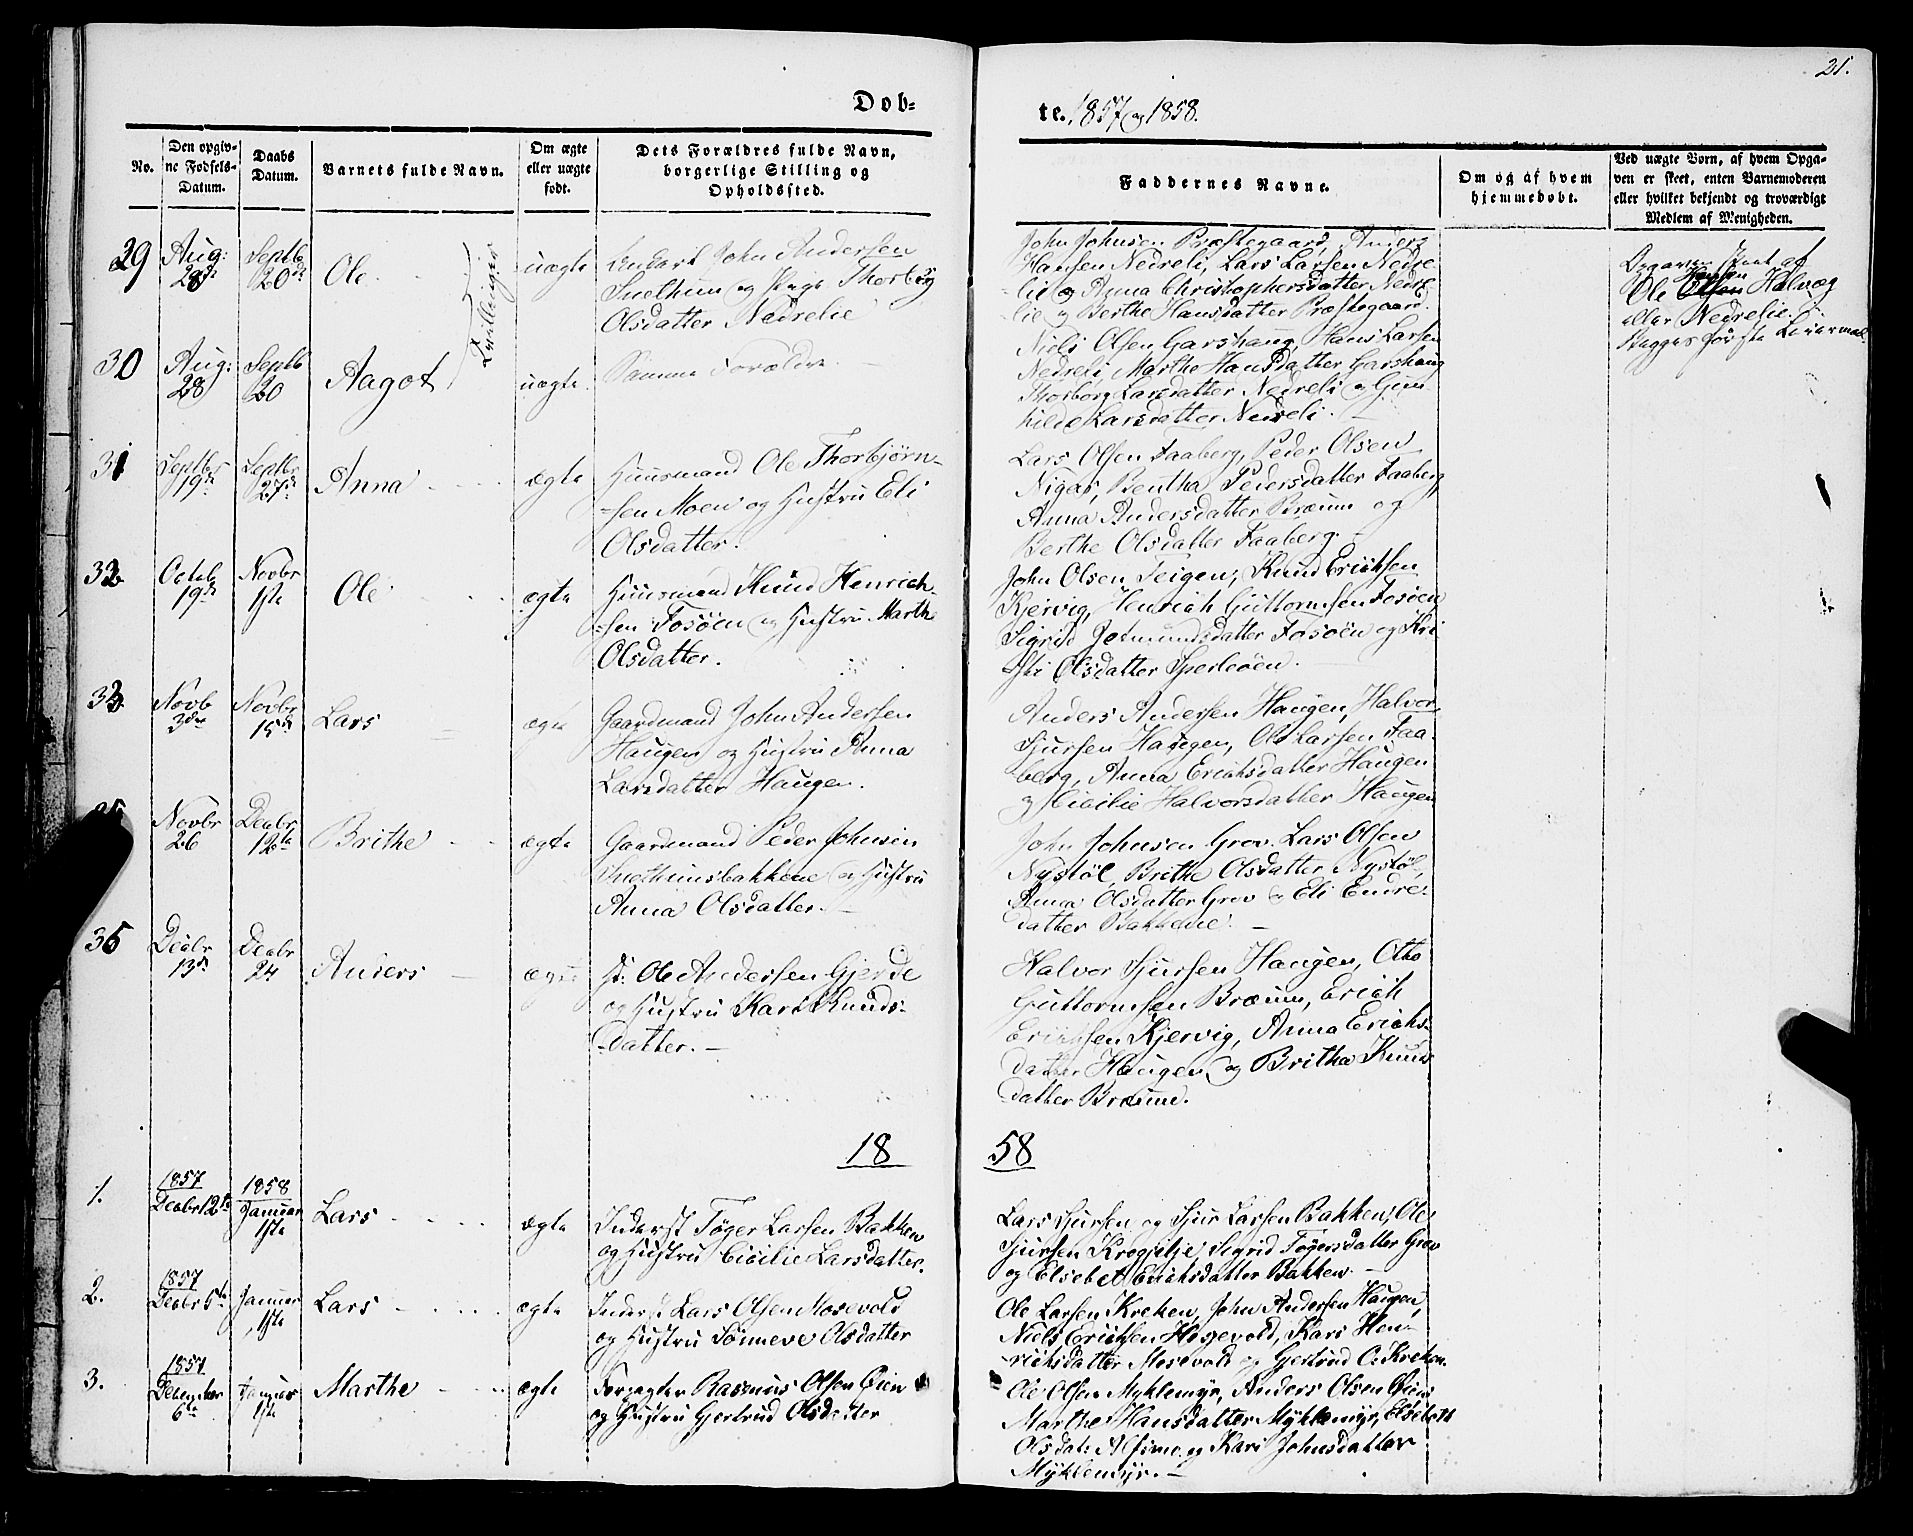 21.
Dob-
te. 1857 og 1858.
No.
Den opgiv-
ne Fødsels-
Datum.
Daabs
Datum.
Barnets fulde Navn.
Om ægte
eller uægte
født.
Dets Forældres fulde Navn,
borgerlige Stilling og
Opholdssted.
Faddernes Navne.
Om og af hvem
hjemmedobt.
Ved uægte Born, af hvem Opga-
ven er skeet, enten Barnemoderen
eller hvilket bekjendt og troværdigt
Medlem af Menigheden.
29
Aug:
28de
Septb
20de
Ole
Tvillinger
uægte
Enkarl John Andersen
Snethun og Pige Thorbög
Olsdatter Nedrelie
John Johnsen Præstegaard, Anders
Hansen Nedreli, Lars Larsen Nedre-
lie og Anna Christophersdatter Nedre
lie og Berthe Hansdatter Præstegaard.
Opgaven skeet af
Ole Hansen Halvæg
eller Nedrelie.
Begges første Leiermaal
30
Aug:
28
Septb
20
Aagot
uægte
Samme Forældre
Niels Olsen Garshaug, Hans Larsen
Nedreli, Marthe Hansdatter Garshaug
Thorborg Larsdatter Nedreli og Gun-
hilde Larsdatter Nedreli.
31
Septbr
19de
Septbr
27de
Anna
ægte
Huusmand Ole Thorbjørn-
sen Moen og Hustru Eli
Olsdatter.
Lars Olsen Faaberg, Peder Olsen
Nigar, Bentha Pedersdatter Faaberg,
Anna Andersdatter Bræum og
Berthe Olsdatter Faaberg.
32
Octob
19de
Novbr
1ste
Ole
ægte
Huusmand Knud Henrich-
sen Fosøen og Hustru Marthe
Olsdatter.
John Olsen Teigen, Knud Erichsen
Kjervig, Henrich Guttormsen Fosøen
Sigrid Jetmundsdatter Fosøen og Kri
sti Olsdatter Sperleöen.
33
Novb
3die
Novbr
15de
Lars
ægte
Gaardmand John Andersen
Haugen og Hustru Anna
Larsdatter Haugen.
Anders Andersen Haugen, Halvor
Sjursen Haugen, Ole Larsen Faa-
berg, Anna Erichsdatter Haugen
og Cicilie Halvorsdatter Haugen
Novbr
26
Decbr
12te
Brithe
ægte
Gaardmand Peder Johnsen
Snethunsbakkene og Hustru
Anna Olsdatter.
John Johnsen Grov, Lars Olsen
Nystöl, Brithe Olsdatter Nystöl,
Anna Olsdatter Grov og Eli Endre-
datter Bakkene.
35
Decbr
13de
Decbr
24
Anders
ægte
Ole Andersen Gjerde
og Hustru Kari Knuds-
datter.
Halvor Sjursen Haugen, Otto
Guttormsen Bræum, Erich
Erichsen Kjervig, Anna Erichs-
datter Haugen og Britha Knuds
datter Bræum.
18 58
1.
1857
Decbr 12te
1858
Januar
1ste
Lars
ægte
Inderst Töger Larsen Bakken
og Hustru Cicilie Larsdatter.
Lars Sjursen og Sjur Larsen Bakken, Ole
Sjursen Krogelje, Sigrid Tögersdatter Grov
og Elsebet Erichsdatter Bakken.
2.
1857
Decbr 5te
Januar
1ste
Lars
ægte
Inderst Lars Olsen Mosevold
og Hustru Sönneve Olsdatter
Ole Larsen Kreken, John Andersen Haugen,
Niels Erichsen Mosevold, Kari Hen-
richsdatter Mosevold og Gjertrud O. Kreken.
3.
1857
December
6te
Januar
1ste
Marthe
ægte
Forpagter Rasmus Olsen Öien
og Hustru Gjertrud Olsdatter
Ole Olsen Myklemyr, Anders Olsen Öien,
Marthe Hansdatter Myklemyr, Elsebeth
Olsdatr Alsmo og Kari Johnsdatter
Myklemyr.